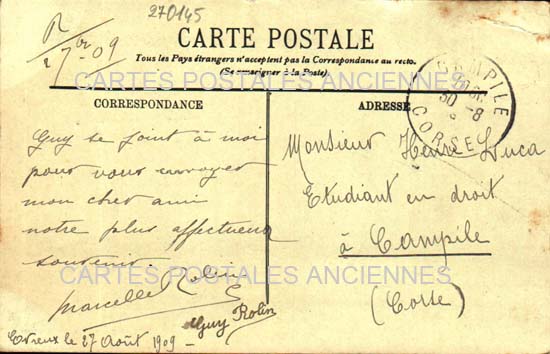 270145
R
2 7bre 09
CARTE POSTALE
Tous les Pays étrangers n'acceptent pas la Correspondance au recto.
(Se renseigner à la Poste)
CARTES POSTALES ANCIENNES
CORRESPONDANCE
ADRESSE
CAMPILE
30 -8
CORSE
Guy se joint à moi
pour vous envoyer
mon cher ami
notre plus affectueux
souvenir.
Marcelle Rolin
Guy Rolin
Evreux le 27 Août 1909 -
Monsieur Henri Luca
Etudiant en droit
à Campile
(Corse)
CARTES POSTALES ANCIENNES